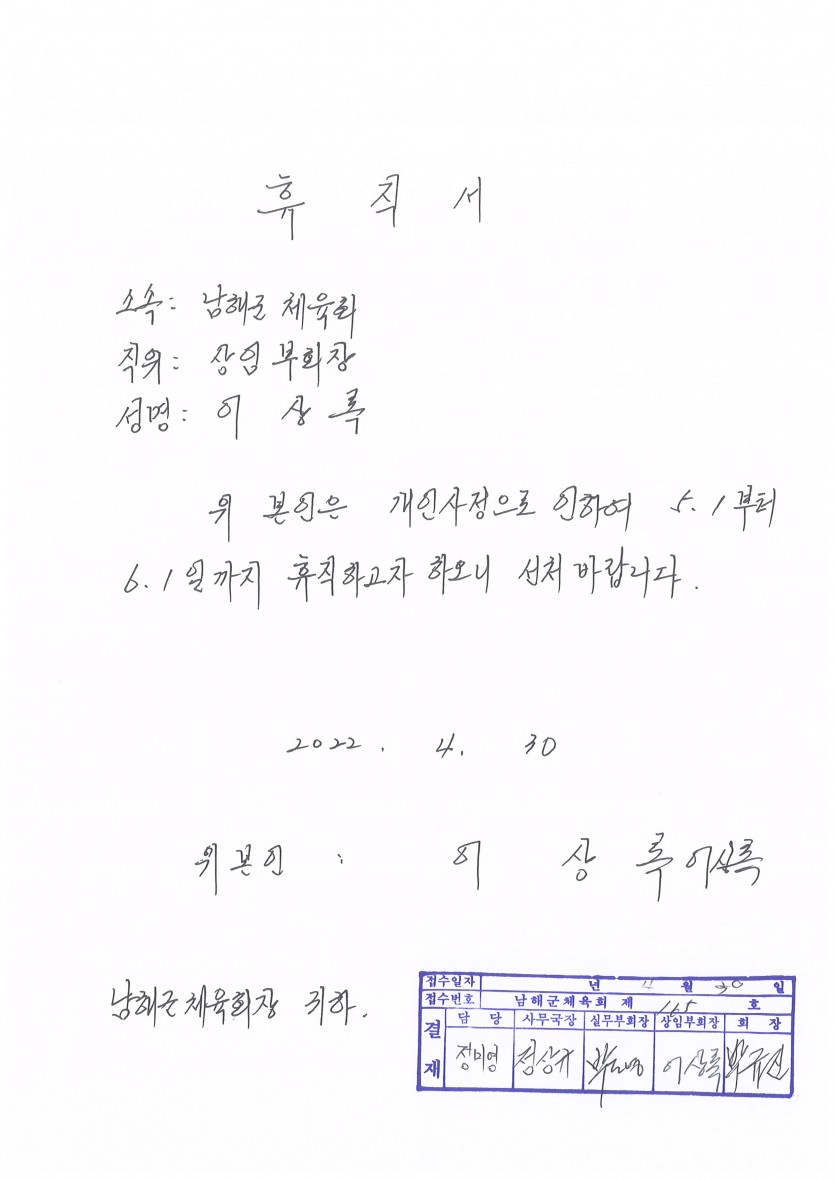 휴 직 서
소속: 남해군 체육회
직위: 상임 부회장
성명: 이 상 록
위 본인은 개인사정으로 인하여 5.1부터
6.1일까지 휴직하고자 하오니 선처 바랍니다.
2022. 4. 30
위본인 : 이 상 록 이상록
남해군체육회장 귀하.
접수일자 년 4 월 30 일
접수번호 남해군체육회 제 165 호
결재 담 당 사무국장 실무부회장 상임부회장 회 장
정미영 정상규 이상록 박규진